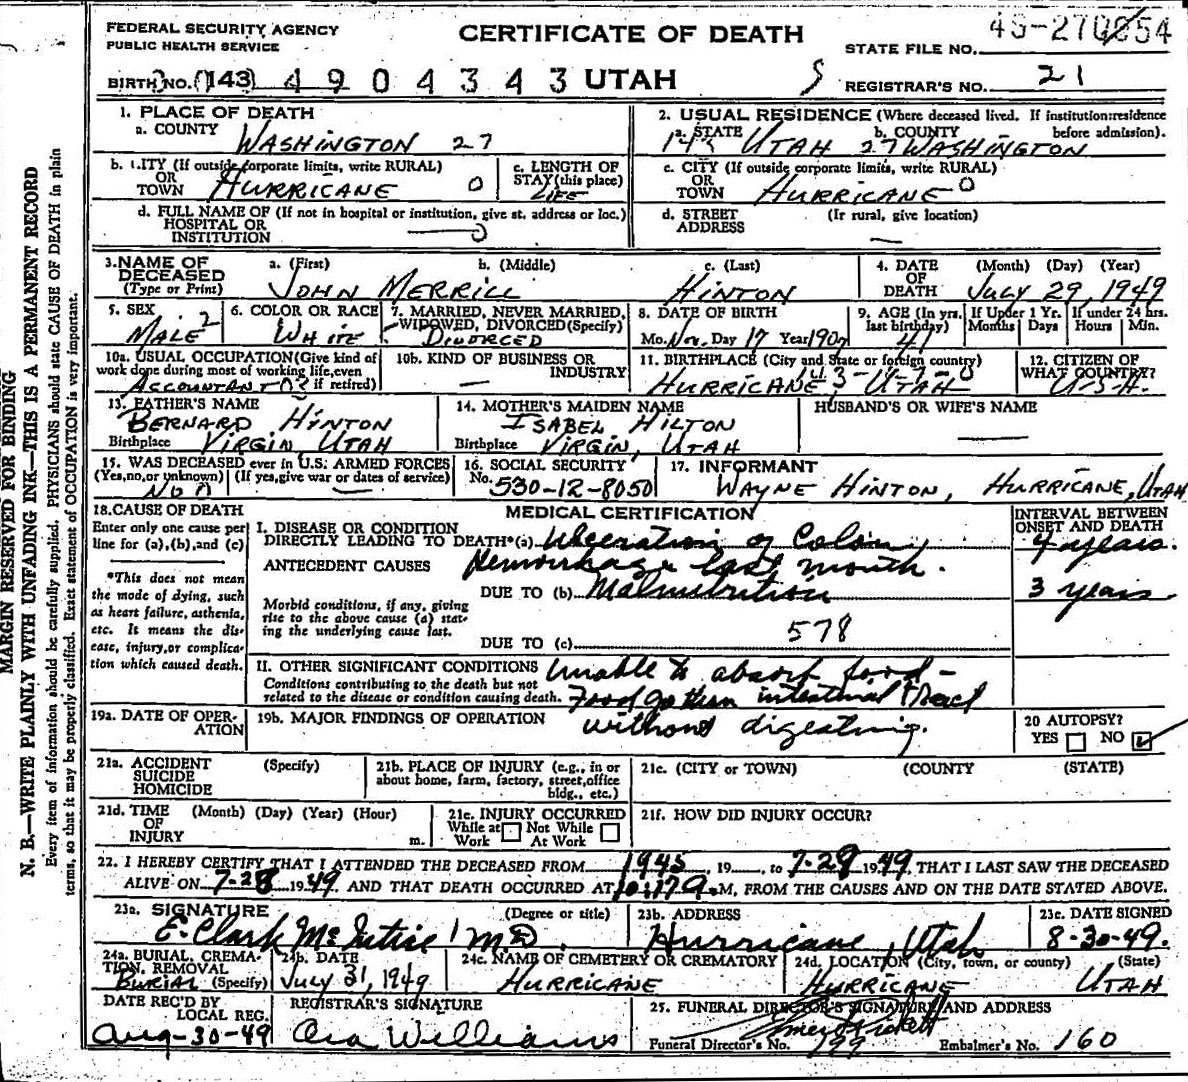 FEDERAL SECURITY AGENCY
PUBLIC HEALTH SERVICE
CERTIFICATE OF DEATH
STATE FILE NO.
BIRTH NO. (143) 4904343 UTAH
REGISTRAR'S NO. 21
1. PLACE OF DEATH
a. COUNTY WASHINGTON 27
2. USUAL RESIDENCE (Where deceased lived. If institution:residence before admission).
a. STATE UTAH b. COUNTY 27 WASHINGTON
b. CITY (If outside corporate limits, write RURAL)
OR TOWN HURRICANE 0
c. LENGTH OF STAY (this place) LIFE
c. CITY (If outside corporate limits, write RURAL)
OR TOWN HURRICANE 0
d. FULL NAME OF (If not in hospital or institution, give st. address or loc.)
HOSPITAL OR INSTITUTION
d. STREET ADDRESS (Ir rural, give location)
3. NAME OF DECEASED (Type or Print)
a. (First) b. (Middle) c. (Last)
JOHN MERRILL HINTON
4. DATE OF DEATH (Month) (Day) (Year)
JULY 29, 1949
5. SEX MALE 2
6. COLOR OR RACE WHITE
7. MARRIED, NEVER MARRIED, WIDOWED, DIVORCED (Specify) DIVORCED
8. DATE OF BIRTH Mo. Nov. Day 17 Year 1907
9. AGE (In yrs. last birthday) 41
If Under 1 Yr. Months Days
If under 24 hrs. Hours Min.
10a. USUAL OCCUPATION (Give kind of work done during most of working life, even if retired) ACCOUNTANT
10b. KIND OF BUSINESS OR INDUSTRY
11. BIRTHPLACE (City and State or foreign country)
HURRICANE, UTAH
12. CITIZEN OF WHAT COUNTRY? U.S.A.
13. FATHER'S NAME
BERNARD HINTON
Birthplace VIRGIN, UTAH
14. MOTHER'S MAIDEN NAME
ISABEL HILTON
Birthplace VIRGIN, UTAH
HUSBAND'S OR WIFE'S NAME
15. WAS DECEASED ever in U.S. ARMED FORCES
(Yes, no, or unknown) (If yes, give war or dates of service)
NO
16. SOCIAL SECURITY No. 530-12-8050
17. INFORMANT
WAYNE HINTON, HURRICANE, UTAH
18. CAUSE OF DEATH
Enter only one cause per line for (a), (b), and (c)
*This does not mean the mode of dying, such as heart failure, asthenia, etc. It means the disease, injury, or complication which caused death.
MEDICAL CERTIFICATION
INTERVAL BETWEEN ONSET AND DEATH
I. DISEASE OR CONDITION DIRECTLY LEADING TO DEATH*(a) Ulceration of Colon, 4 years.
ANTECEDENT CAUSES Hemorrhage last month.
DUE TO (b) Malnutrition 3 years
Morbid conditions, if any, giving rise to the above cause (a) stating the underlying cause last.
578
DUE TO (c)
II. OTHER SIGNIFICANT CONDITIONS Unable to absorb food -
Conditions contributing to the death but not related to the disease or condition causing death. Food go thru intestinal tract
without digesting.
19a. DATE OF OPERATION
19b. MAJOR FINDINGS OF OPERATION
20 AUTOPSY? YES NO
21a. ACCIDENT SUICIDE HOMICIDE (Specify)
21b. PLACE OF INJURY (e.g., in or about home, farm, factory, street, office bldg., etc.)
21c. (CITY or TOWN) (COUNTY) (STATE)
21d. TIME OF INJURY (Month) (Day) (Year) (Hour) m.
21e. INJURY OCCURRED While at Work Not While At Work
21f. HOW DID INJURY OCCUR?
22. I HEREBY CERTIFY THAT I ATTENDED THE DECEASED FROM 1945, 19 , to 7-28 1949, THAT I LAST SAW THE DECEASED
ALIVE ON 7-28 1949, AND THAT DEATH OCCURRED AT M, FROM THE CAUSES AND ON THE DATE STATED ABOVE.
23a. SIGNATURE (Degree or title)
E. Clark McIntire M.D.
23b. ADDRESS
Hurricane, Utah
23c. DATE SIGNED
8-30-49.
24a. BURIAL, CREMATION, REMOVAL (Specify) BURIAL
24b. DATE July 31, 1949
24c. NAME OF CEMETERY OR CREMATORY
HURRICANE
24d. LOCATION (City, town, or county) (State)
HURRICANE UTAH
DATE REC'D BY LOCAL REG.
Aug-30-49
REGISTRAR'S SIGNATURE
Ora Williams
25. FUNERAL DIRECTOR'S SIGNATURE AND ADDRESS
Funeral Director's No. 199 Embalmer's No. 160
MARGIN RESERVED FOR BINDING
N. B.—WRITE PLAINLY WITH UNFADING INK—THIS IS A PERMANENT RECORD
Every item of information should be carefully supplied. PHYSICIANS should state CAUSE OF DEATH in plain
terms, so that it may be properly classified. Exact statement of OCCUPATION is very important.